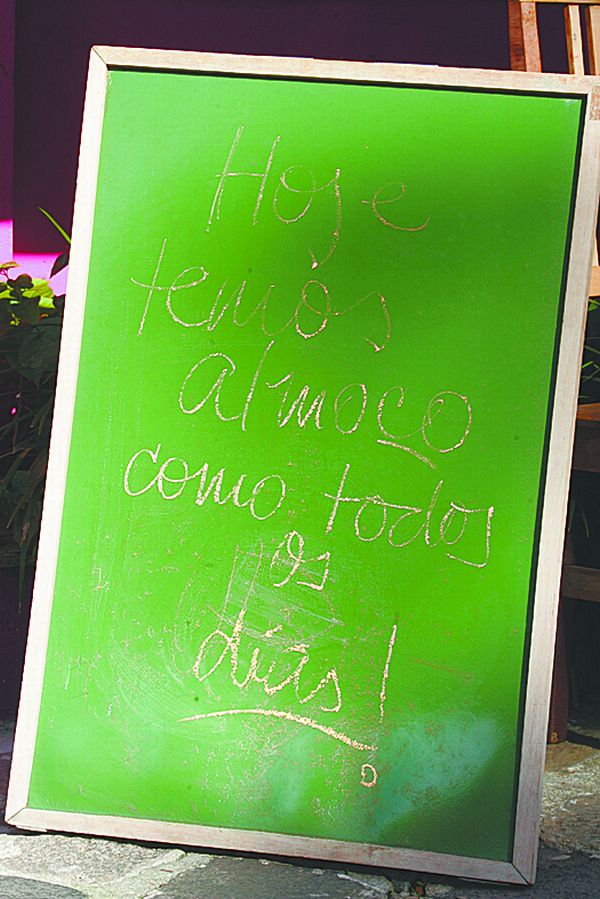 Hoje e
temos
almoço
como todos
os
dias!